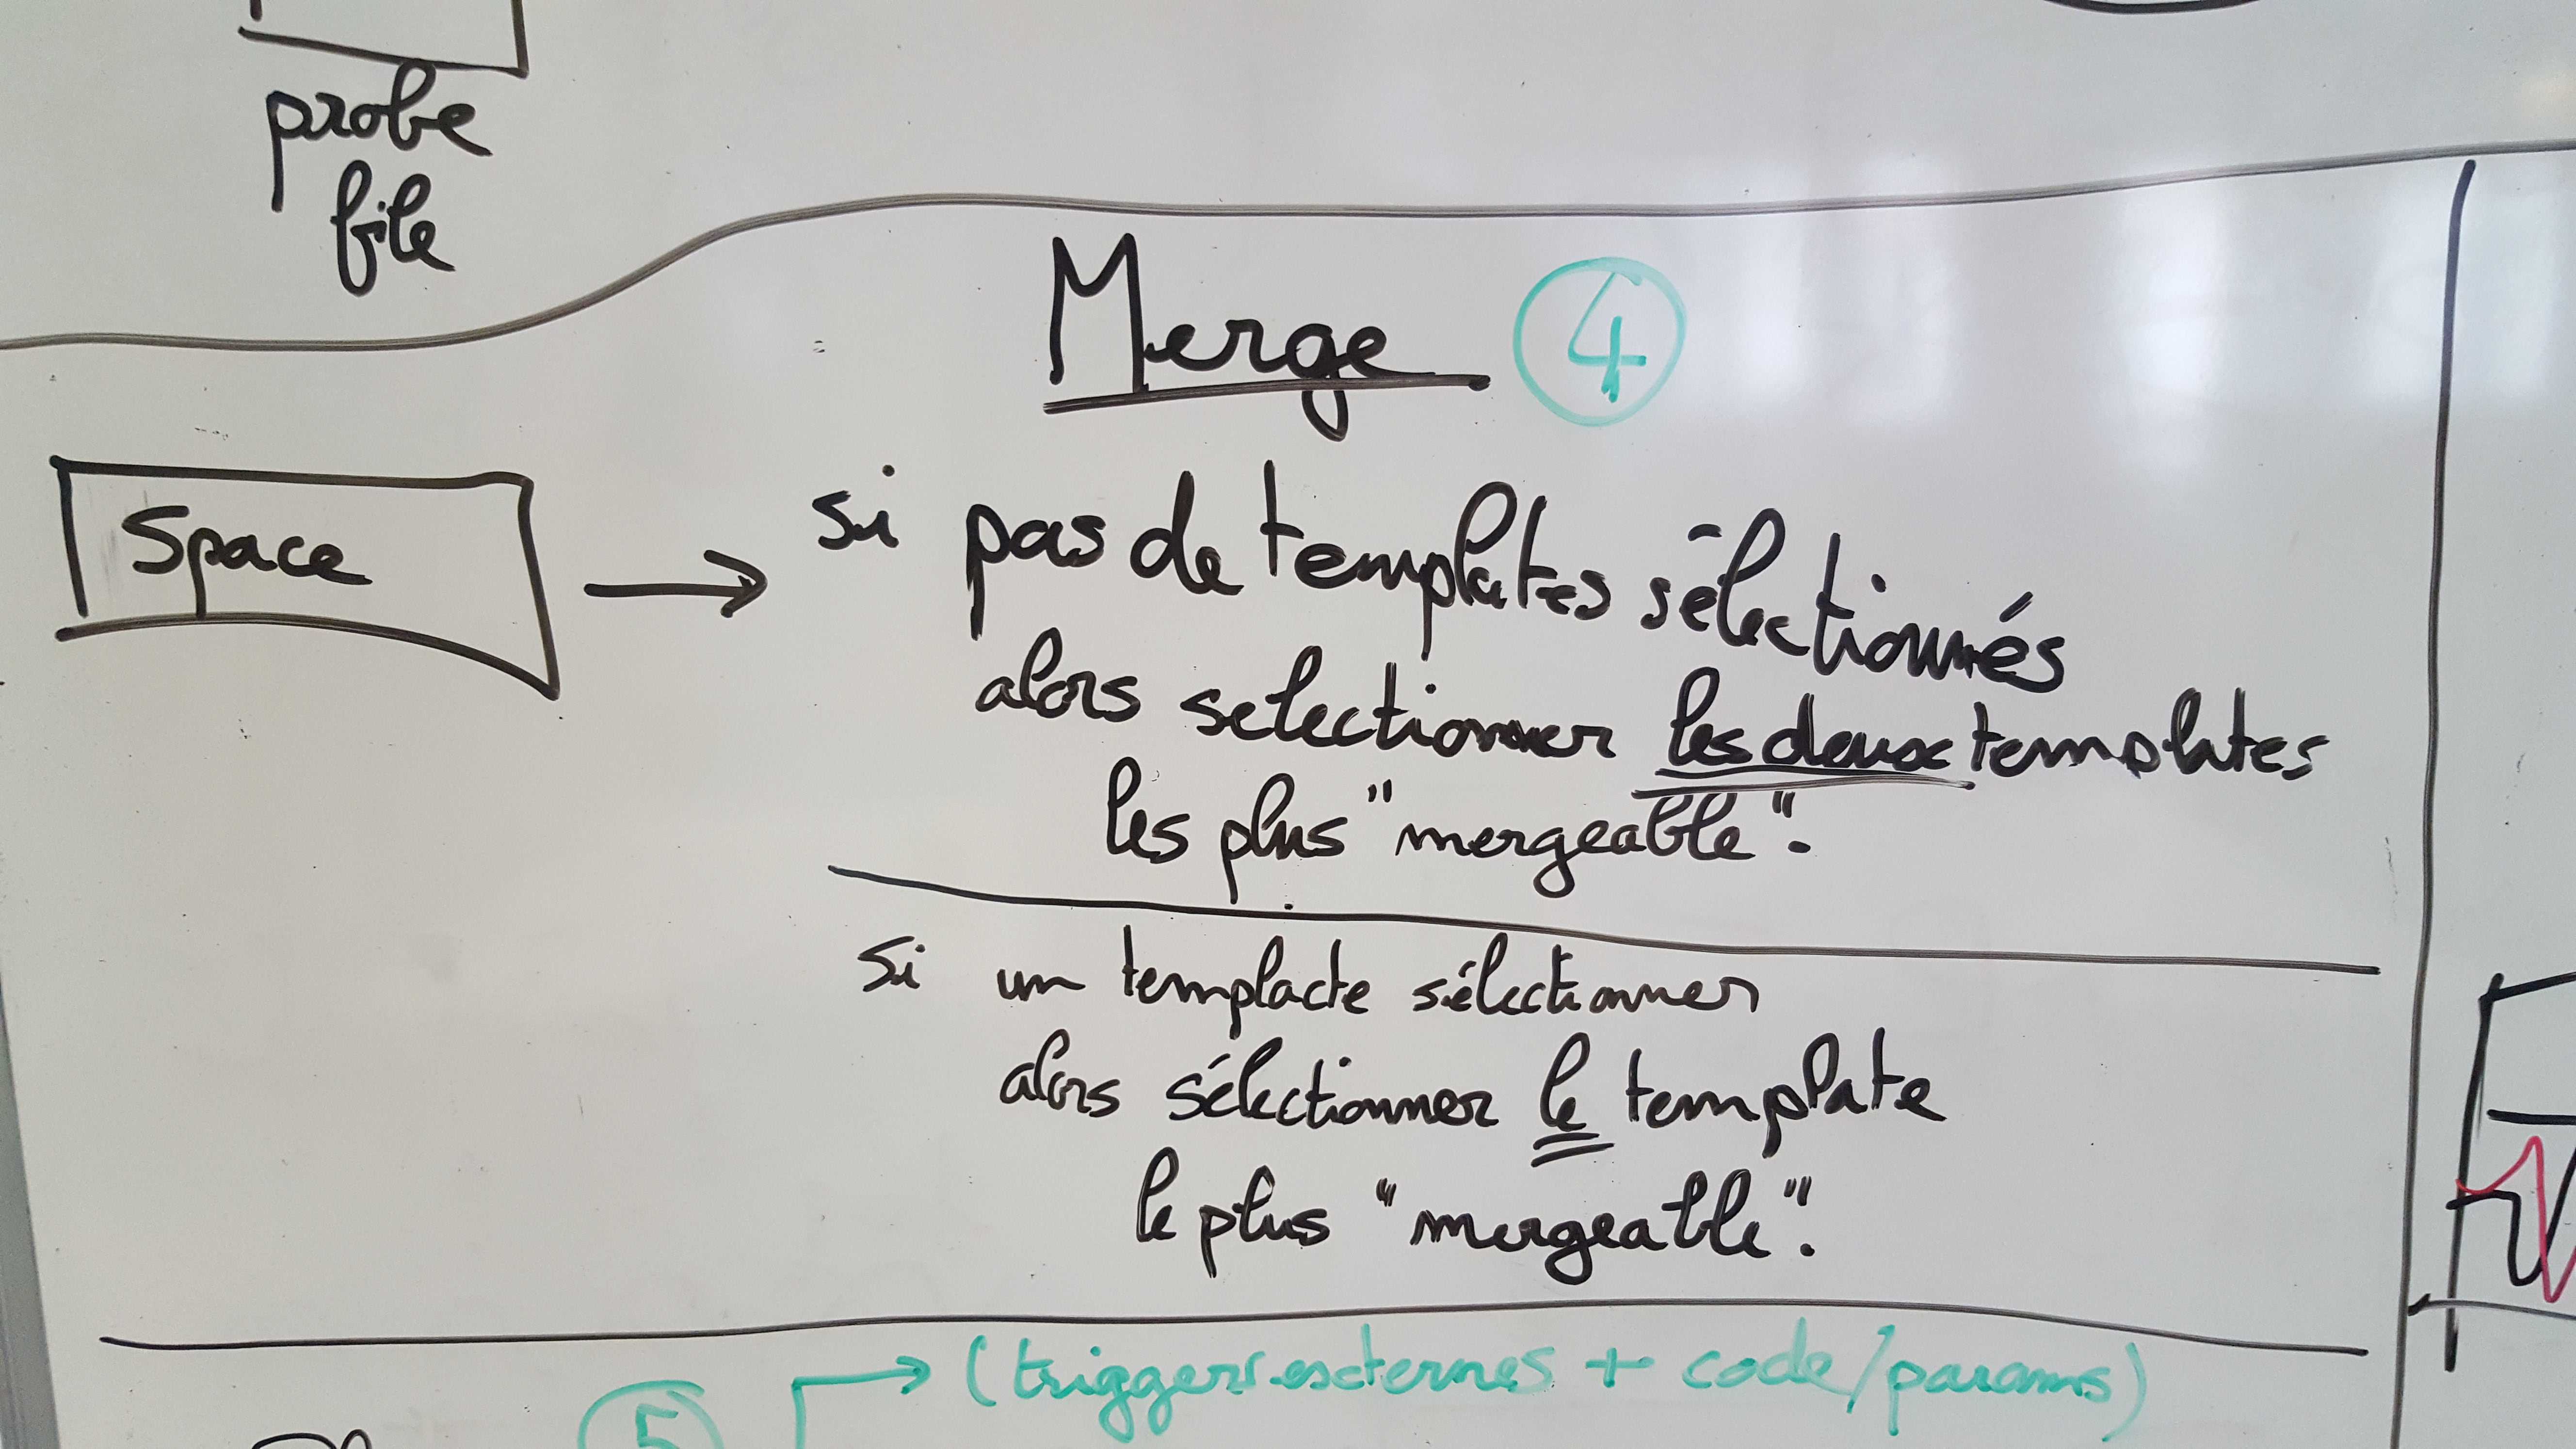 probe
file
Merge 4
Space
si pas de templates sélectionnés
alors selectionner les deux templates
les plus "mergeable".
si un templacte sélectionner
alors sélectionner le template
le plus "mergeable".
(triggers externes + code/params)
5